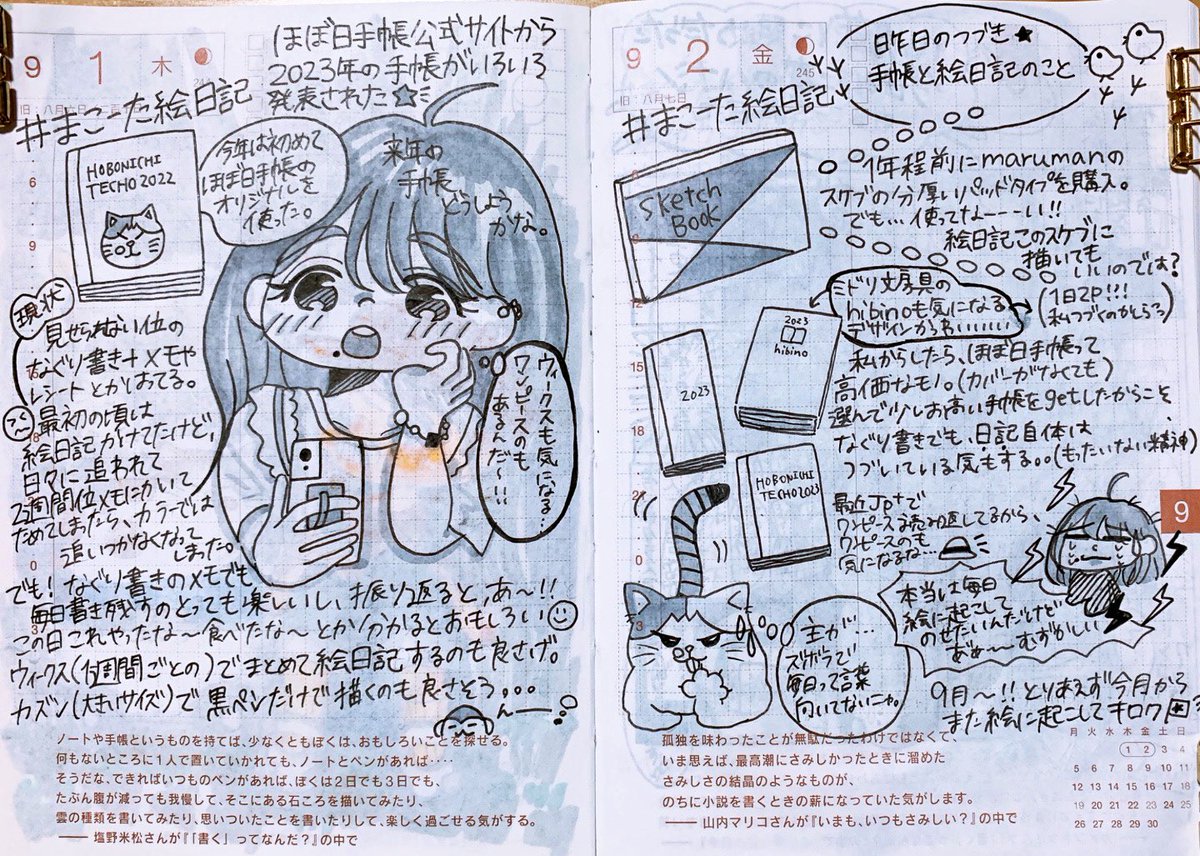 9 1 木
244
ほぼ日手帳公式サイトから
2023年の手帳がいろいろ
発表された
#まこーた絵日記
HOBONICHI
TECHO 2022
今年は初めて
ほぼ日手帳の
オリジナルを
使った。
来年の
手帳
どうしよう
かな。
現状
見せられない位の
なぐり書き+メモや
レシートとかはてる。
最初の頃は
絵日記かけてたけど、
日々に追われて
2週間位メモにかいて
ためてしまったら、カラーでは
追いつかなくなって
しまった。
ウィークスも気になる..
ワンピースのも
あるんだ〜!!
でも!なぐり書きのメモでも
毎日書き残すのとっても楽しいし、振り返ると、あ〜!!
この日これやったな〜食べたな〜とか分かるとおもしろい
ウィークス(1週間ごとの)でまとめて絵日記するのも良さげ。
カズン(大きいサイズ)で黒ペンだけで描くのも良さそう...
んーー
ノートや手帳というものを持てば、少なくともぼくは、おもしろいことを探せる。
何もないところに1人で置いていかれても、ノートとペンがあれば‥‥
そうだな、できればいつものペンがあれば、ぼくは2日でも3日でも、
たぶん腹が減っても我慢して、そこにある石ころを描いてみたり、
雲の種類を書いてみたり、思いついたことを書いたりして、楽しく過ごせる気がする。
―― 塩野米松さんが『「書く」ってなんだ?』の中で
9 2 金
245
旧:八月七日
昨日のつづき
手帳と絵日記のこと
#まこーた絵日記
Sketch
Book
1年程前にmarumanの
スケブの分厚いパッドタイプを購入。
でも...使ってなーーーい!!
絵日記このスケブに
描いても
いいのでは?
(1日2P!!!
私つづくのかしらろ)
ミドリ文房具の
hibinoも気になる
デザインかわいいいいいい
2023
2023
hibino
私からしたら、ほぼ日手帳って
高価なモノ。(カバーがなくても)
選んで少しお高い手帳をgetしたからこそ
なぐり書きでも、日記自体は
つづいている気もする。。(もったいない精神)
HOBONICHI
TECHO2023
最近Jp+で
ワンピース読み返してるから、
ワンピースのも
気になるな…
本当は毎日
絵に起こして
のせたいんだけど
あぁ〜〜むずかしい
主が...
ズボラで
毎日って言葉
向いてないニャ。
9月〜!!とりあえず今月から
また絵に起こしてキロク
孤独を味わったことが無駄だったわけではなくて、
いま思えば、最高潮にさみしかったときに溜めた
さみしさの結晶のようなものが、
のちに小説を書くときの薪になっていた気がします。
―― 山内マリコさんが『いまも、いつもさみしい?』の中で
9
月 火 水 木 金 土 日
1 2 3 4
5 6 7 8 9 10 11
12 13 14 15 16 17 18
19 20 21 22 23 24 25
26 27 28 29 30